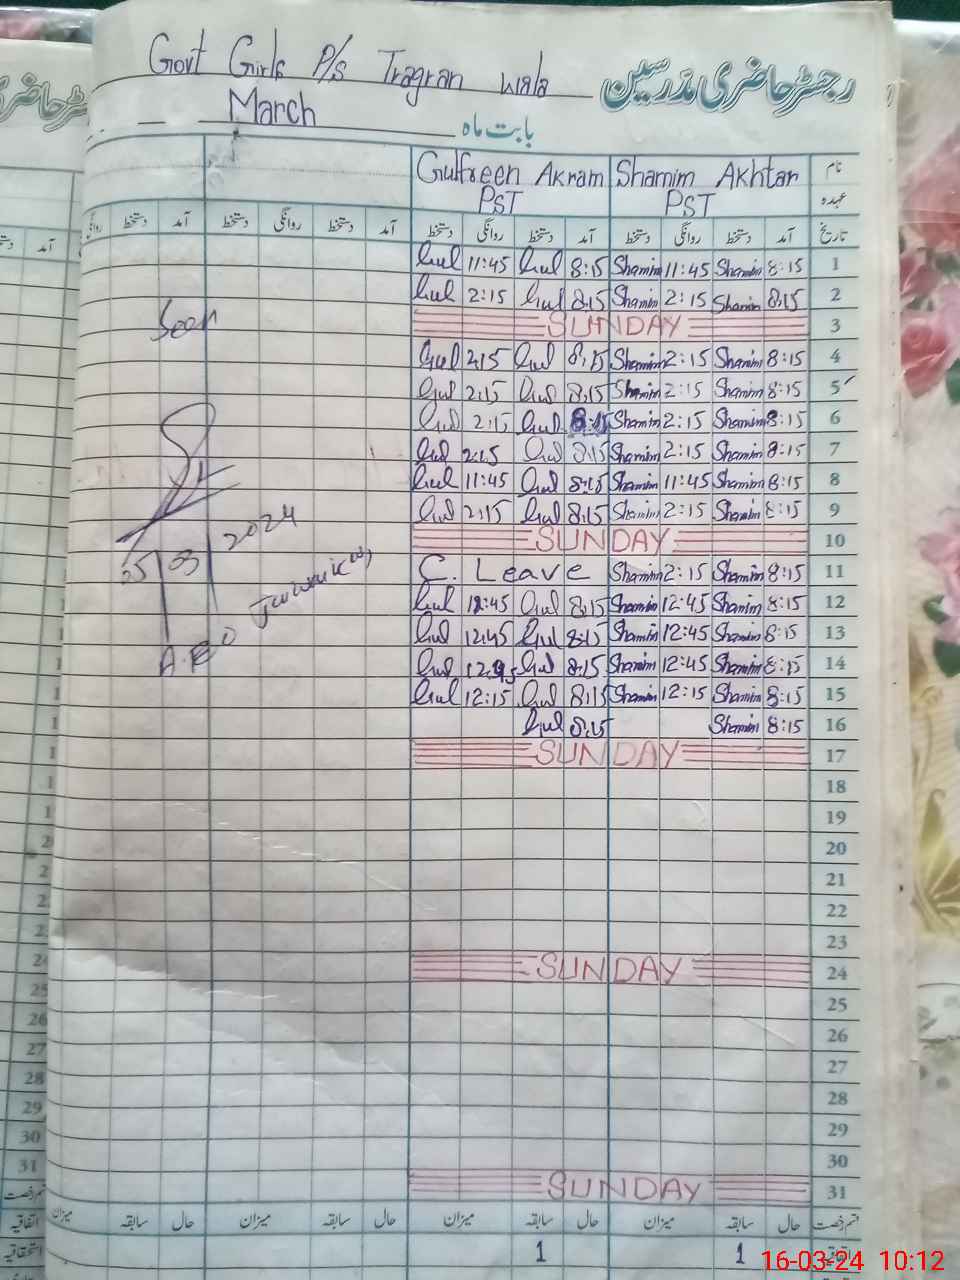 Govt Girls P/s Tragran wala
رجسٹر حاضری مدرسین
March
بابت ماہ
Gulfreen Akram Shamim Akhtar نام
PST PST عہدہ
روانگی دستخط آمد دستخط روانگی دستخط آمد دستخط روانگی دستخط آمد دستخط روانگی دستخط آمد تاریخ
Gul 11:45 Gul 8:15 Shamim 11:45 Shamim 8:15 1
Gul 2:15 Gul 8:15 Shamim 2:15 Shamim 8:15 2
SUNDAY 3
Seen
Gul 2:15 Gul 8:15 Shamim 2:15 Shamim 8:15 4
Gul 2:15 Gul 8:15 Shamim 2:15 Shamim 8:15 5
Gul 2:15 Gul 8:15 Shamim 2:15 Shamim 8:15 6
Gul 2:15 Gul 8:15 Shamim 2:15 Shamim 8:15 7
Gul 11:45 Gul 8:15 Shamim 11:45 Shamim 8:15 8
Gul 2:15 Gul 8:15 Shamim 2:15 Shamim 8:15 9
SUNDAY 10
03 2024
C. Leave Shamim 2:15 Shamim 8:15 11
Gul 12:45 Gul 8:15 Shamim 12:45 Shamim 8:15 12
Gul 12:45 Gul 8:15 Shamim 12:45 Shamim 8:15 13
A.EO
Gul 12:45 Gul 8:15 Shamim 12:45 Shamim 8:15 14
Gul 12:15 Gul 8:15 Shamim 12:15 Shamim 8:15 15
Gul 8:15 Shamim 8:15 16
SUNDAY 17
18
19
20
21
22
23
SUNDAY 24
25
26
27
28
29
30
SUNDAY 31
میزان سابقہ حال میزان سابقہ حال میزان سابقہ حال میزان سابقہ حال قسم رخصت
1 1 اتفاقیہ
16-03-24 10:12